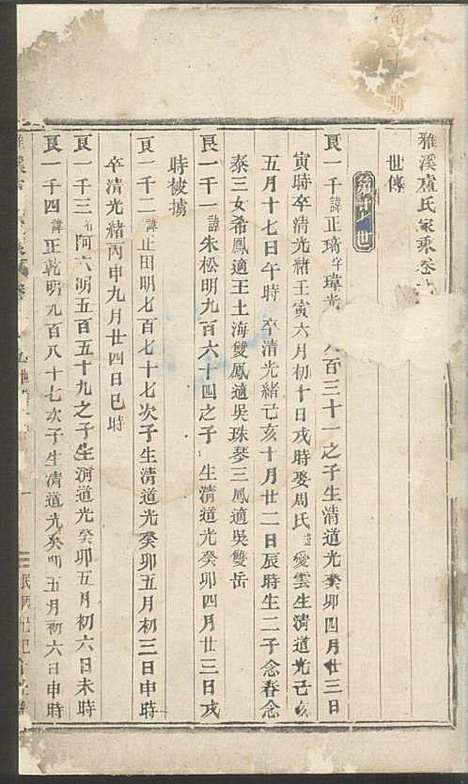 雅溪盧氏家乘卷
世傳
世
良一千諱正璠字瑋 八百三十一之子生清道光癸卯四月廿三日
寅時卒清光緒壬寅六月初十日戌時娶周氏諱愛雲生清道光己亥
五月十七日午時卒清光緒己亥十月廿二日辰時生二子念春念
泰三女希鳳適王土海雙鳳適吳珠琴三鳳適吳雙岳
良一千一諱朱松明九百六十四之子生清道光癸卯四月廿三日戌
時被擄
良一千二諱正田明七百七十七次子生清道光癸卯五月初三日申時
卒清光緒丙申九月廿四日巳時
良一千三名阿六明五百五十九之子生清道光癸卯五月初六日未時
良一千四諱正乾明九百八十七次子生清道光癸卯五月初六日申時